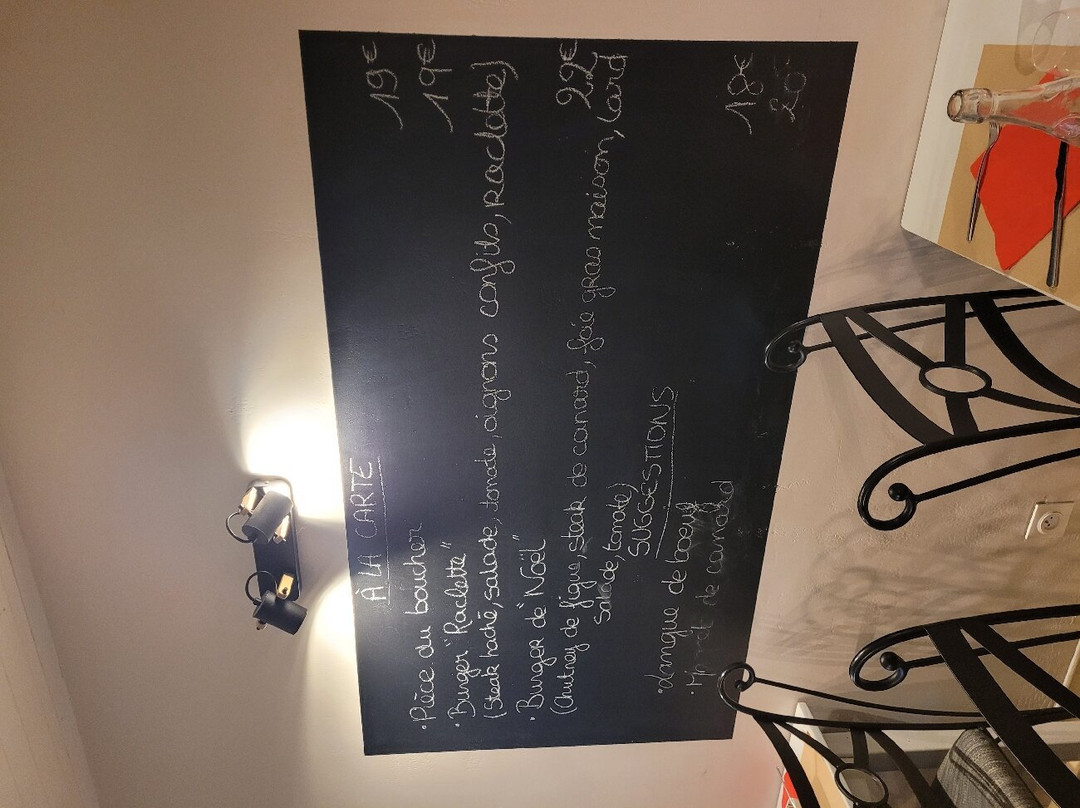 À LA CARTE
· Pièce du boucher 19€
· Burger "Raclette" 19€
(Steak haché, salade, tomate, oignons confits, raclette)
· Burger de "Noël" 22€
(Chutney de figue, steak de canard, foie gras maison, lard
salade, tomate)
SUGGESTIONS
· Langue de boeuf 18€
· de canard 20